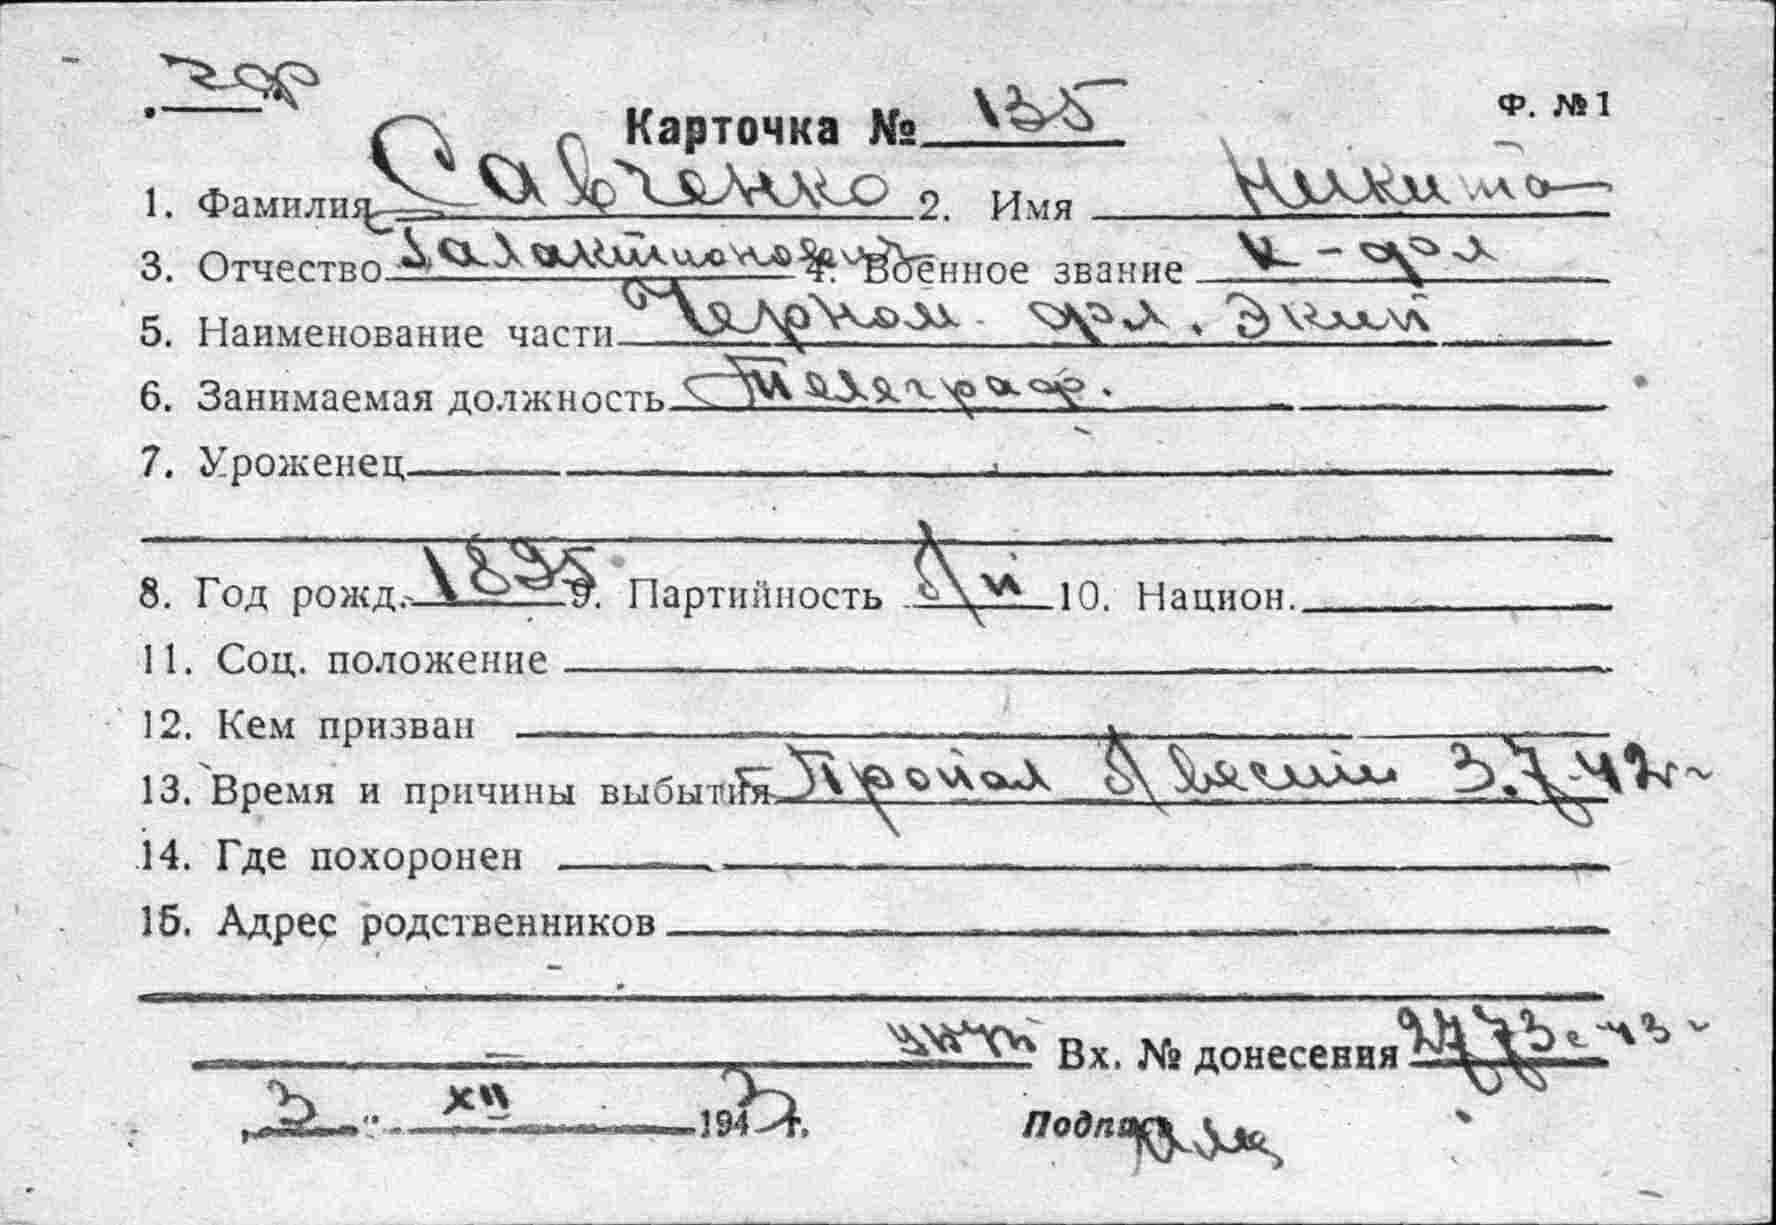 Ф. № 1
Карточка № 135
1. Фамилия Савченко 2. Имя Никита
3. Отчество Галактионович 4. Военное звание к-фл
5. Наименование части Черном. фл.
6. Занимаемая должность Телеграф.
7. Уроженец
8. Год рожд. 1895 9. Партийность 10. Национ.
11. Соц. положение
12. Кем призван
13. Время и причины выбытия Пропал б/вести 3.7.42г
14. Где похоронен
15. Адрес родственников
Вх. № донесения 2773с 43г
3 XII 1943 г. Подпись